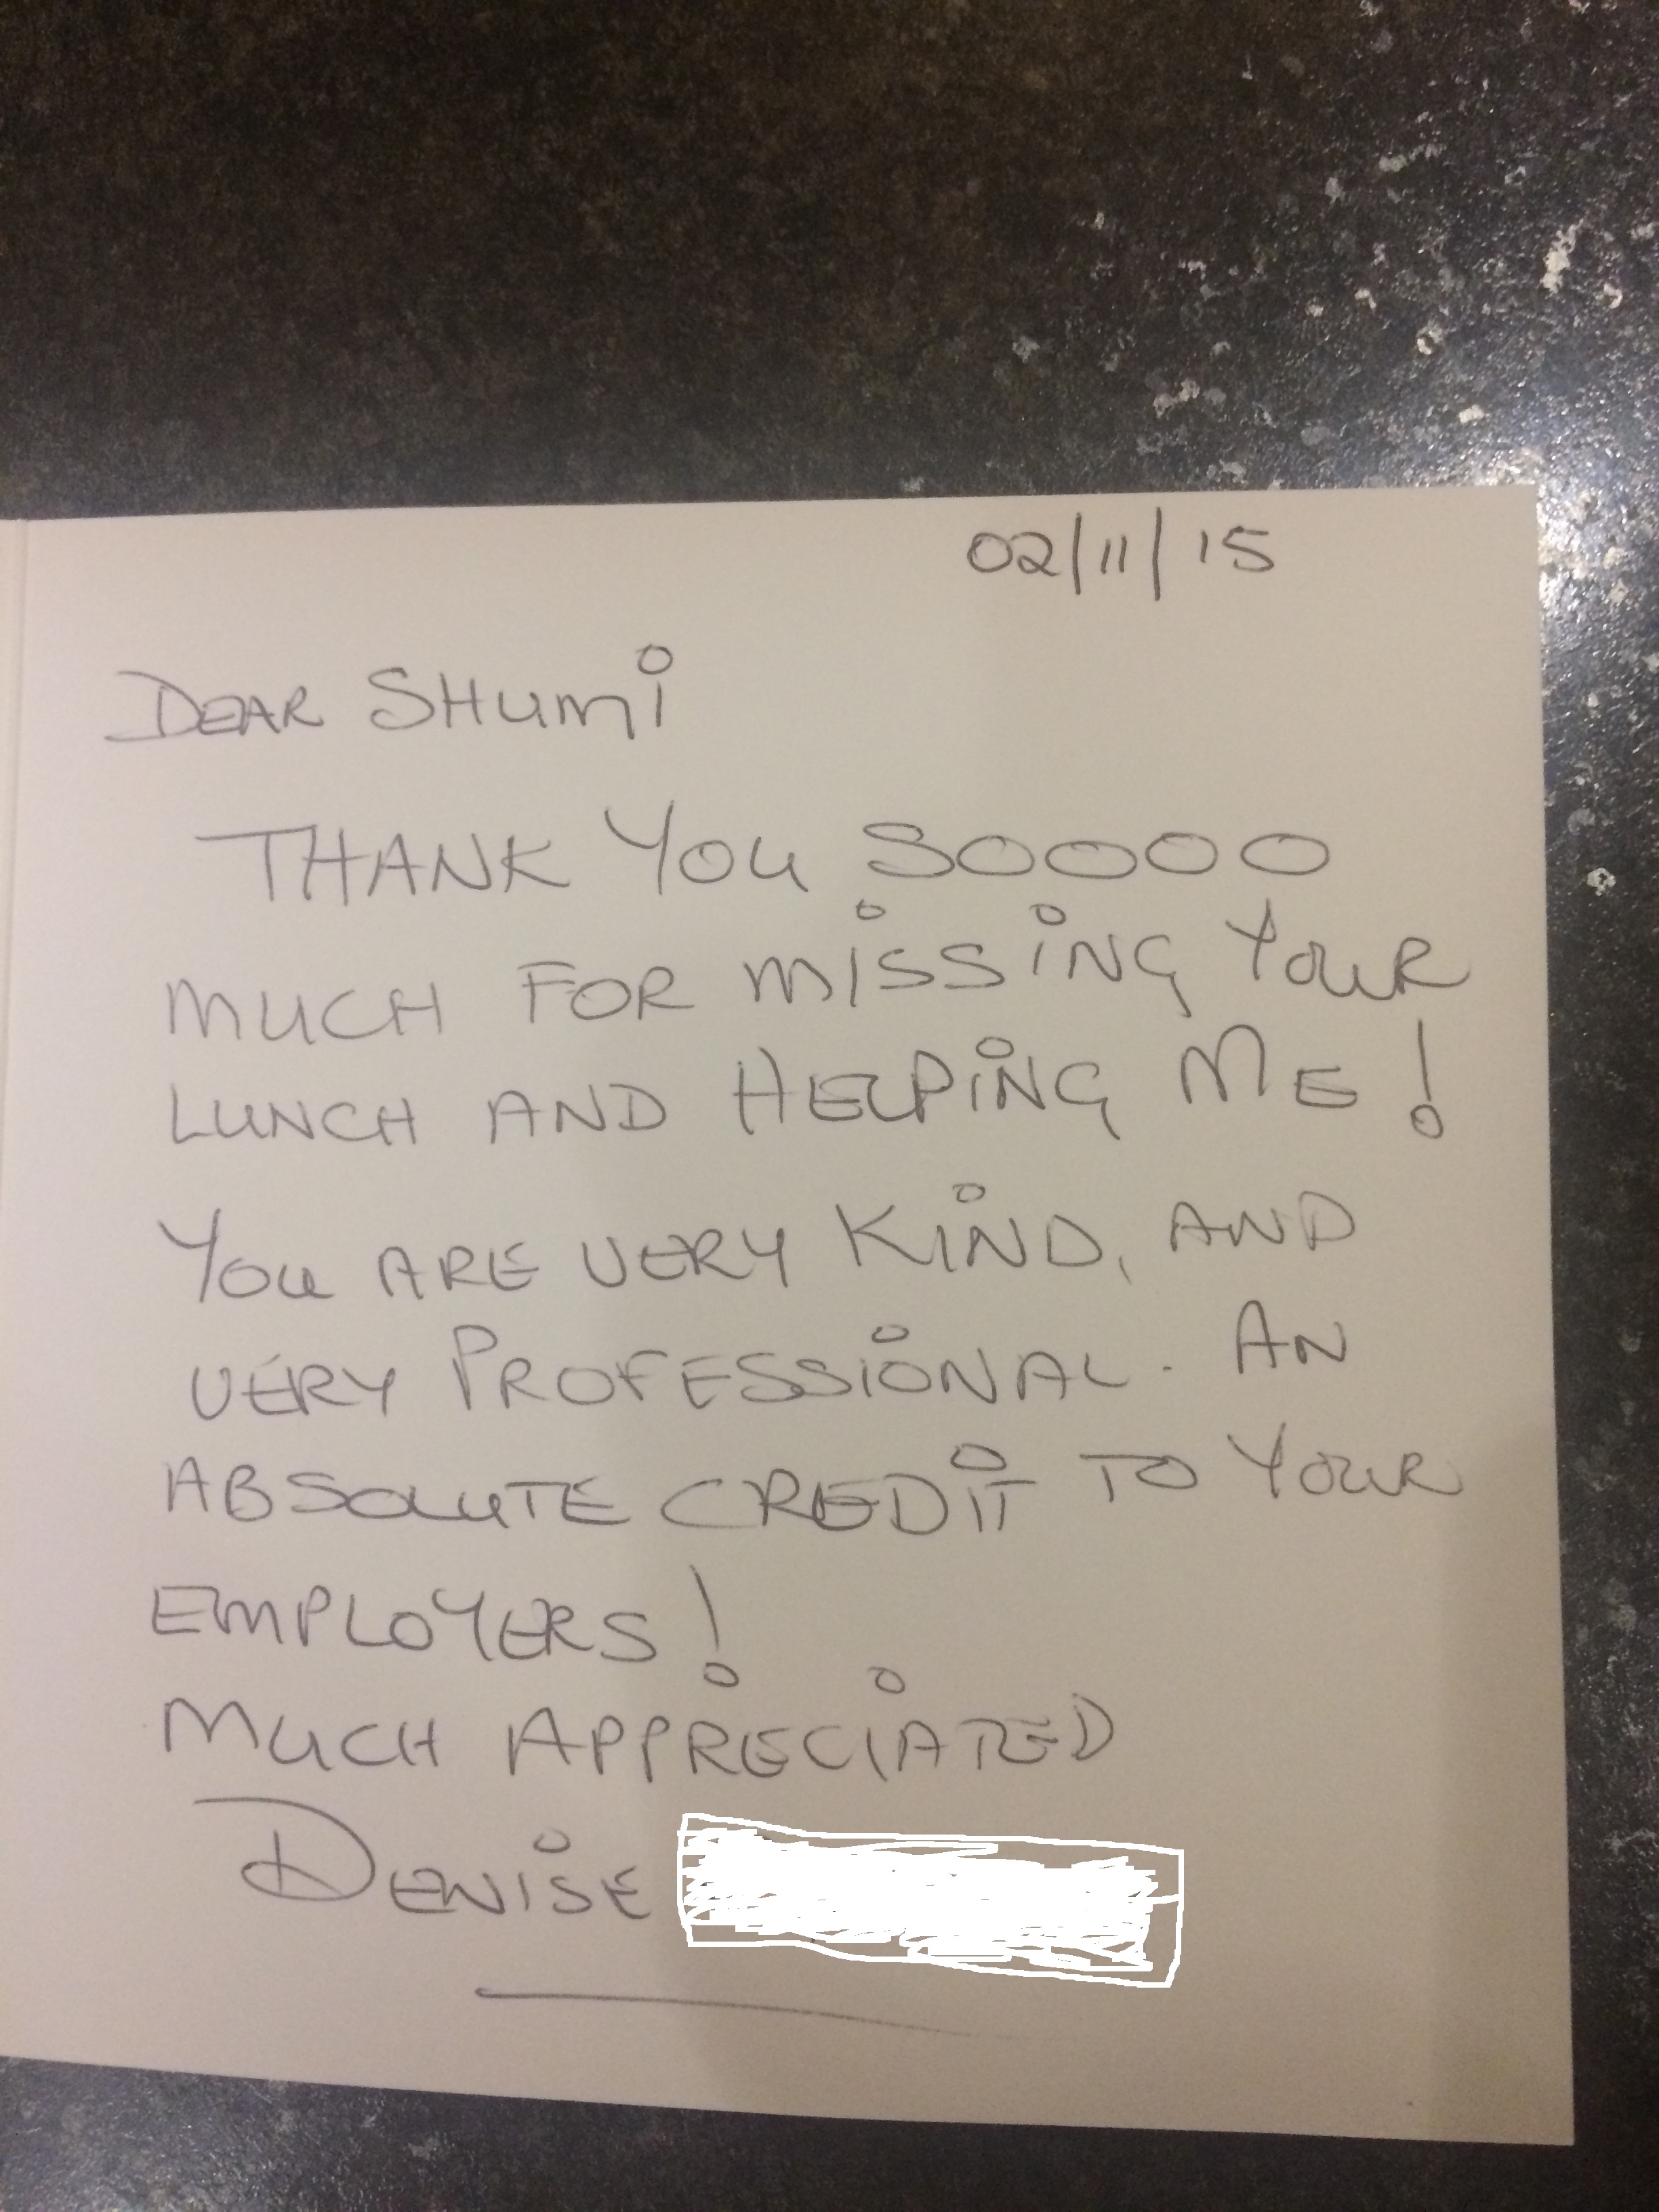 02/11/15
DEAR SHUMi
THANK YOU SOOOO
MUCH FOR MiSSiNG YOUR
LUNCH AND HELPiNG ME!
YOU ARE VERY KiND, AND
VERY PROFESSiONAL. AN
ABSOLUTE CREDiT TO YOUR
EMPLOYERS!
MUCH APPRECiATED
DENiSE